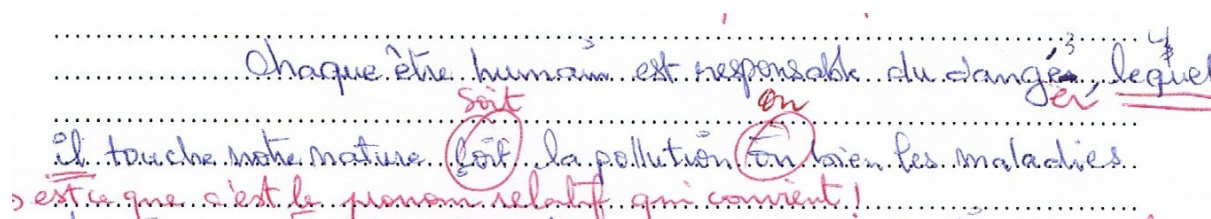 Chaque être humain est responsable du dangé, lequel
er,
soit on
il touche notre nature soit la pollution on bien les maladies
est ce que c'est le pronom relatif qui convient !